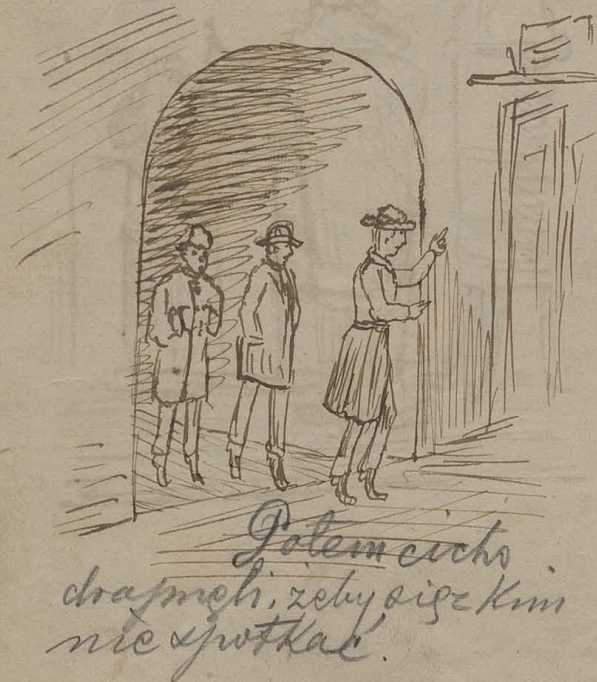 Potem cicho
drapnęli, żeby się z kim
nie spotkać.